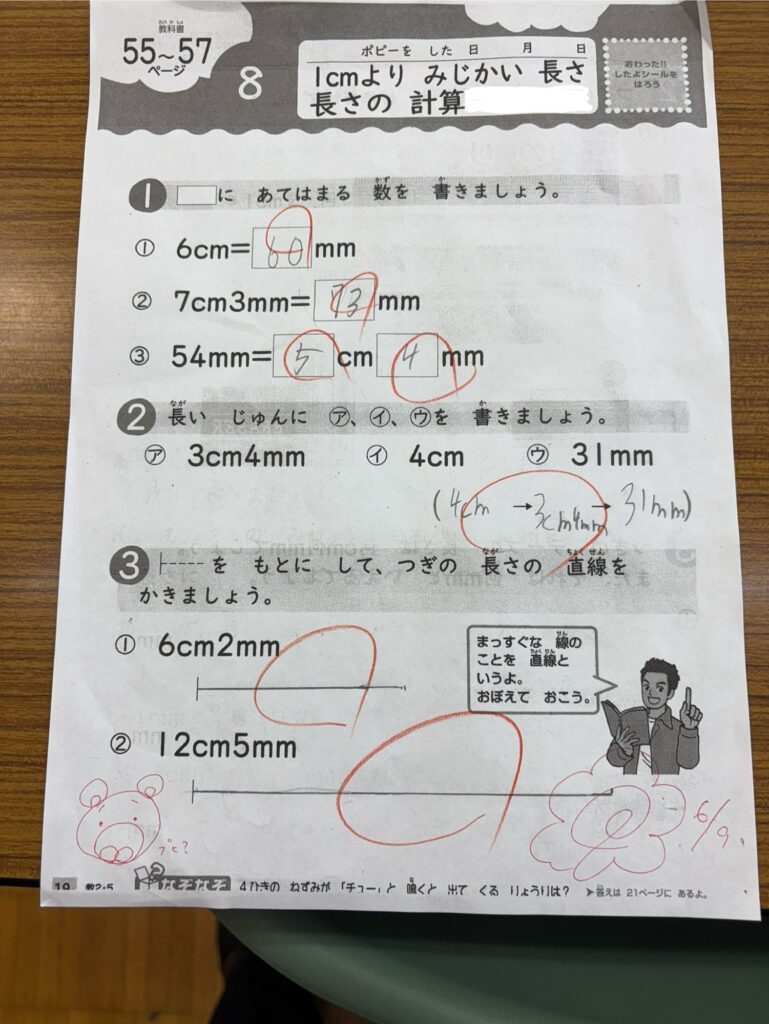 教科書
55~57
ページ
8
ポピーを した 日 月 日
1cmより みじかい 長さ
長さの 計算
おわった!!
したよシールを
はろう
1 □に あてはまる 数を 書きましょう。
① 6cm=60mm
② 7cm3mm=73mm
③ 54mm=5cm4mm
2 長い じゅんに ㋐、㋑、㋒を 書きましょう。
㋐ 3cm4mm ㋑ 4cm ㋒ 31mm
(4cm →3cm4mm→ 31mm)
3 を もとに して、つぎの 長さの 直線を
かきましょう。
① 6cm2mm
まっすぐな 線の
ことを 直線と
いうよ。
おぼえて おこう。
② 12cm5mm
6/9
19 教2・5 なぞなぞ 4ひきの ねずみが 「チュー」と 鳴くと 出て くる りょうりは? ▶答えは 21ページに あるよ。